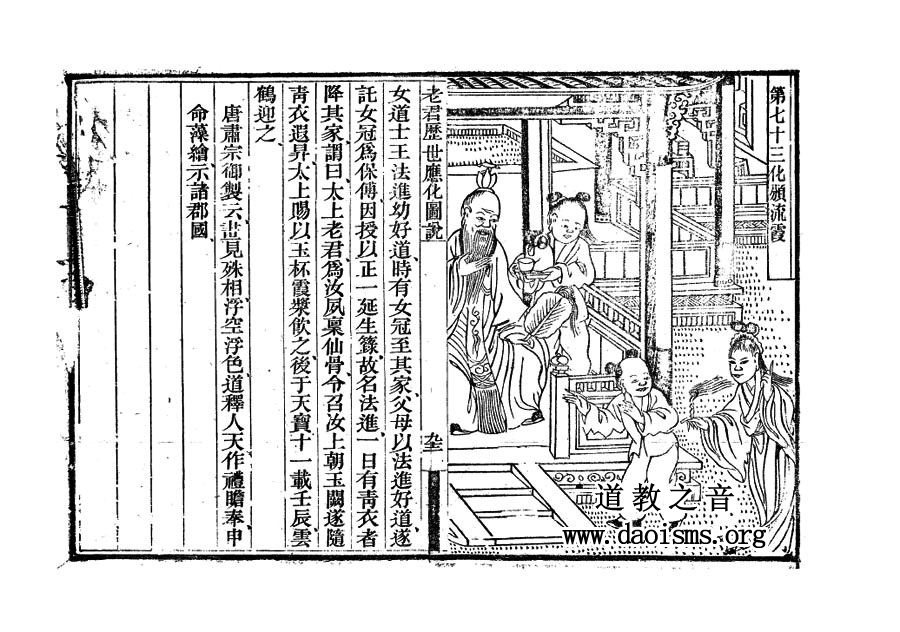 第七十三化頒流霞
老君歷世應化圖說
女道士王法進幼好道、時有女冠至其家、父母以法進好道、遂
託女冠爲保傳、因授以正一延生籙、故名法進、一日有青衣者
降其家、謂曰、太上老君爲汝夙稟仙骨、令召汝上朝玉闕、遂隨
青衣遐昇、太上賜以玉杯霞漿飲之、後于天寶十一載壬辰、雲
鶴迎之、
唐肅宗御製云、晝見殊相、浮空浮色、道釋人天、作禮瞻奉、申
命藻繪、示諸郡國、
道教之音
www.daoisms.org